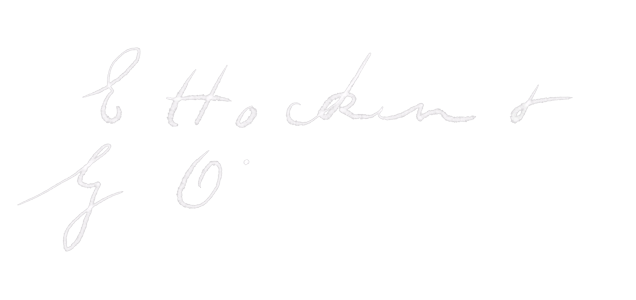 E Hocken &
G O.